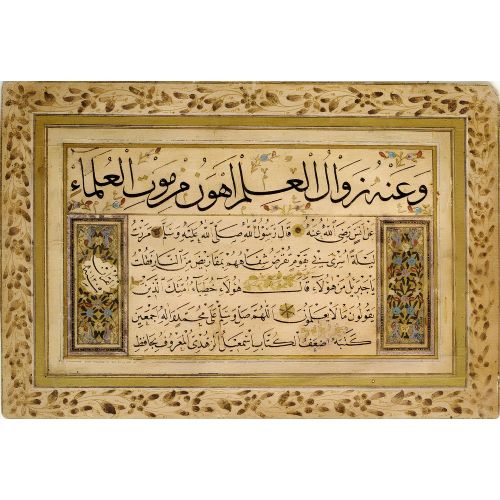 وعنه زوال العلم اهون من موت العلماء
عن انس رضي الله عنه قال رسول الله صلى الله عليه وسلم مررت
ليلة اسري بي بقوم تقرض شفاههم بمقاريض من النار فقلت
يا جبريل من هؤلاء قال هؤلاء خطباء امتك الذين
يقولون ما لا يفعلون اللهم صل وسلم على محمد واله اجمعين
كتبه اضعف الكتاب اسمعيل الزهدي المعروف بحافظ